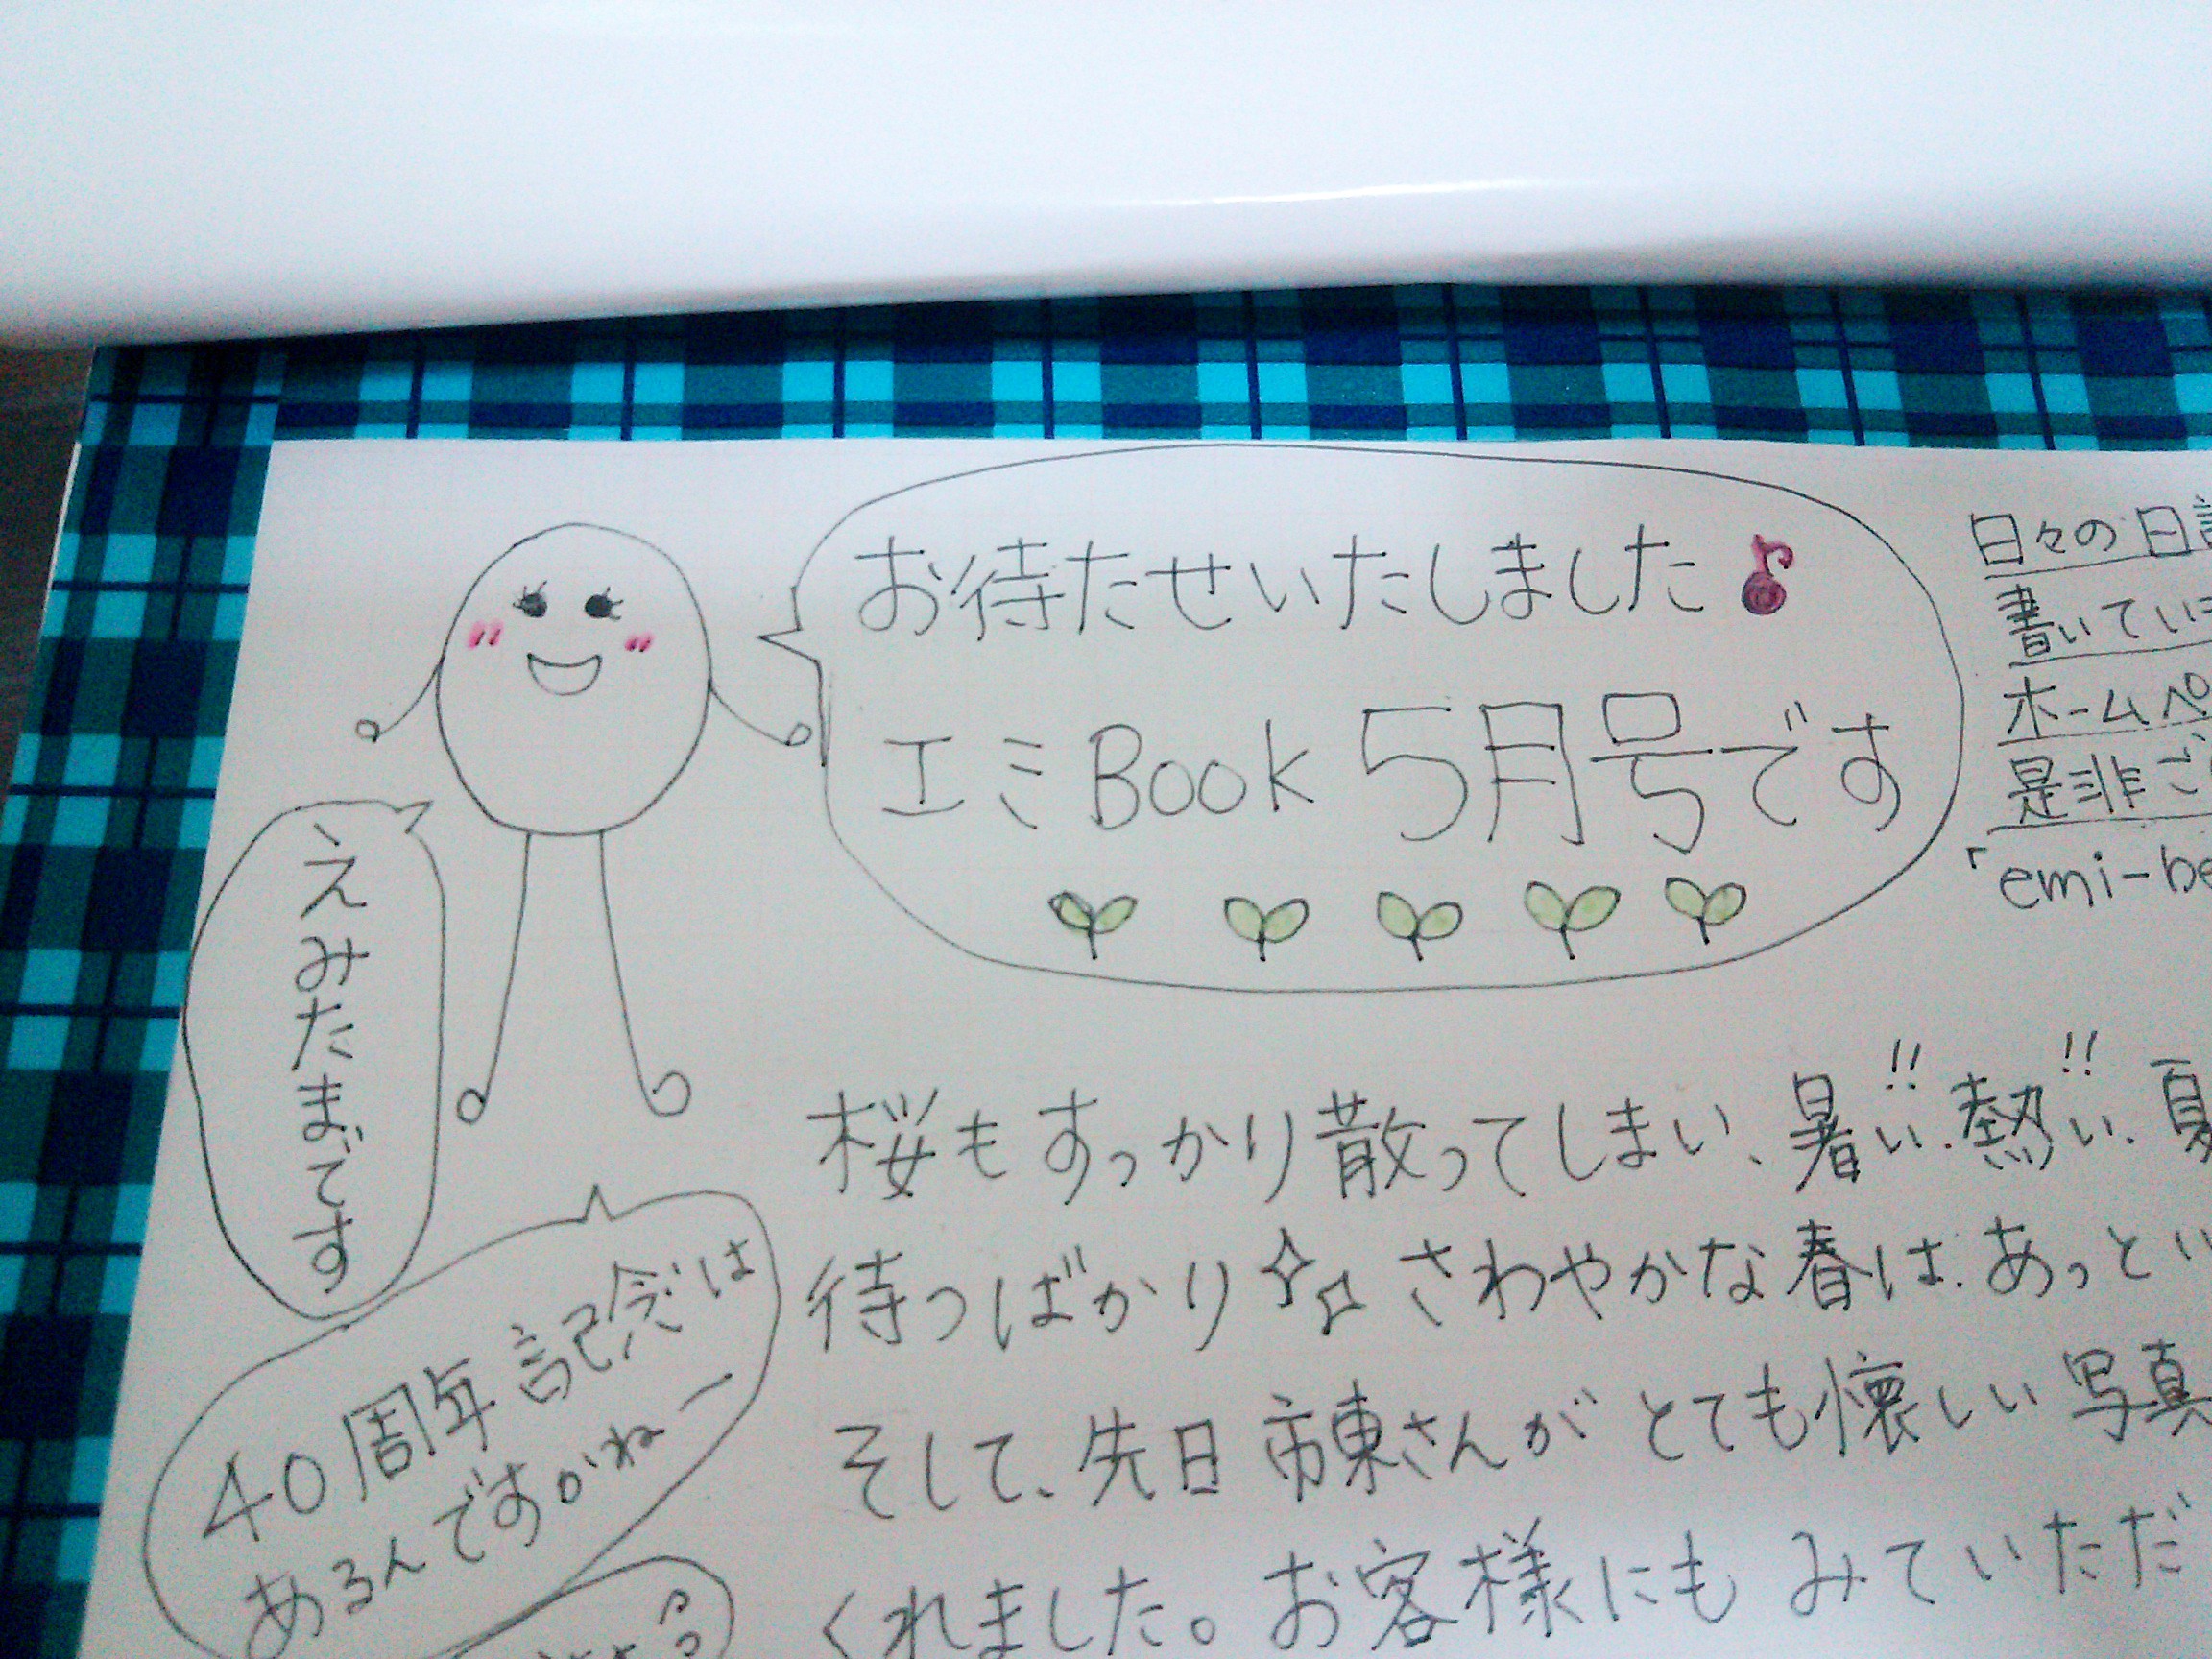 お待たせいたしました♪
エミBook 5月号です
えみたまです
日々の日
書いてい
ホームペ
是非ご
「emi-be
桜もすっかり散ってしまい、暑い!!、熱い!!、夏
待つばかり さわやかな春は、あっとい
そして、先日 市東さんが とても懐しい 写真
くれました。お客様にも みていただ
40周年記念は
あるんですかねー